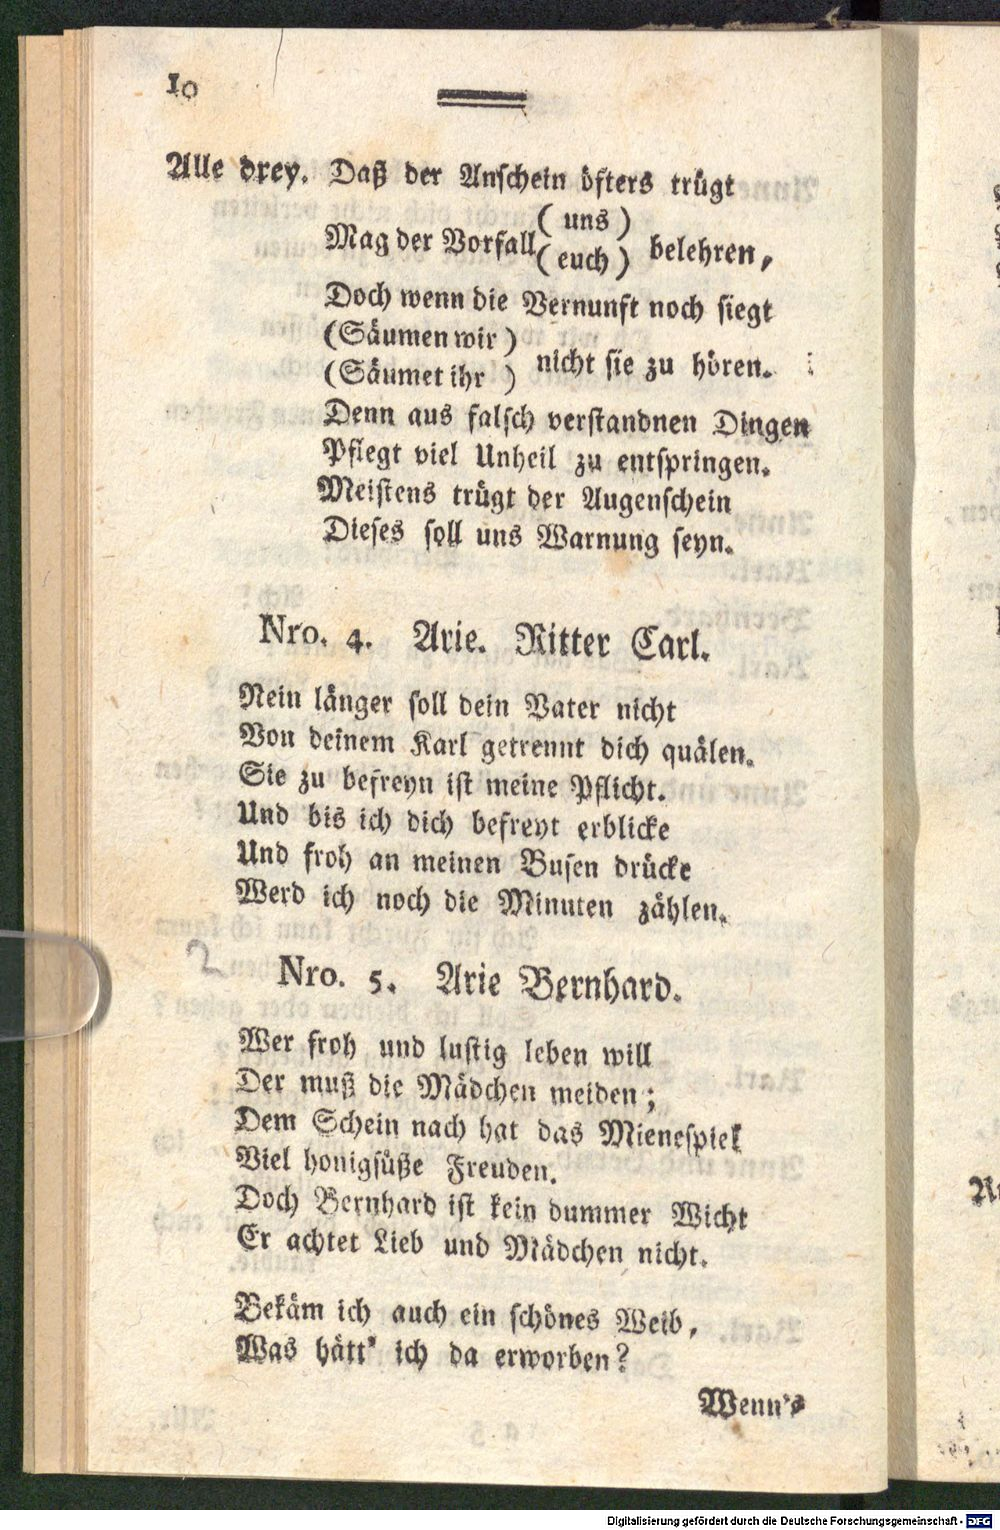 10
Alle drey. Daß der Anschein öfters trügt
( uns )
Mag der Vorfall ( euch ) belehren,
Doch wenn die Vernunft noch siegt
(Säumen wir )
(Säumet ihr ) nicht sie zu hören.
Denn aus falsch verstandnen Dingen
Pflegt viel Unheil zu entspringen.
Meistens trügt der Augenschein
Dieses soll uns Warnung seyn.
Nro. 4. Arie. Ritter Carl.
Nein länger soll dein Vater nicht
Von deinem Karl getrennt dich quälen.
Sie zu befreyn ist meine Pflicht.
Und bis ich dich befreyt erblicke
Und froh an meinen Busen drücke
Werd ich noch die Minuten zählen.
2
Nro. 5. Arie Bernhard.
Wer froh und lustig leben will
Der muß die Mädchen meiden;
Dem Schein nach hat das Mienespiel
Viel honigsüße Freuden.
Doch Bernhard ist kein dummer Wicht
Er achtet Lieb und Mädchen nicht.
Bekäm ich auch ein schönes Weib,
Was hätt' ich da erworben?
Wenn's
Digitalisierung gefördert durch die Deutsche Forschungsgemeinschaft - DFG